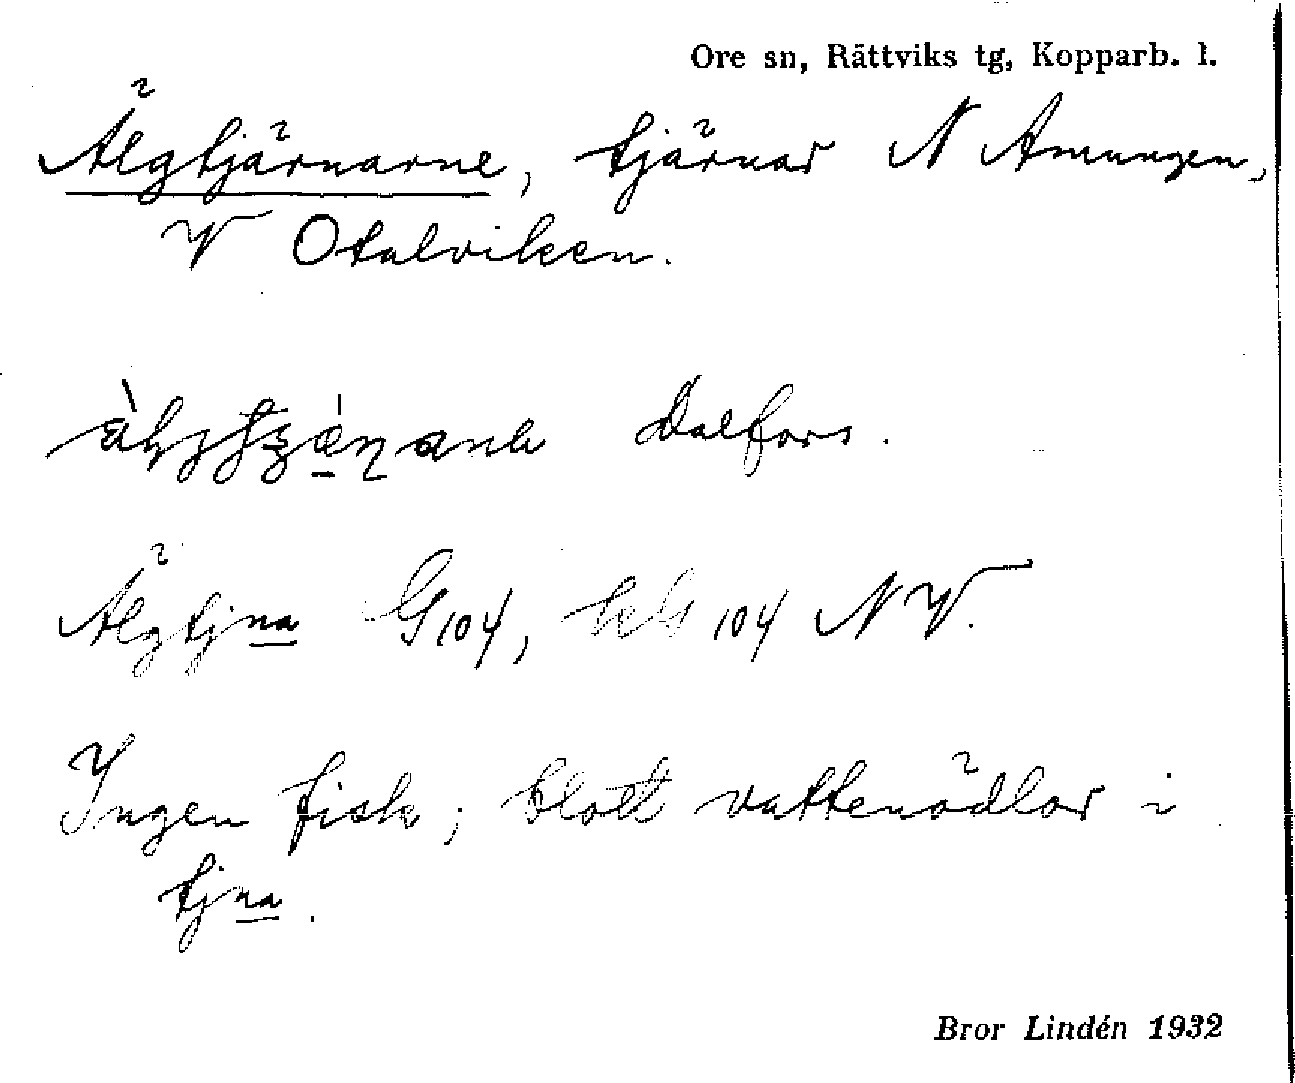 Ore sn, Rättviks tg, Kopparb. l.
Älgtjärnarne, tjärnar N Amungen,
V Otalviken.
Dalfors.
Älgtjna G104, kG 104 NV.
Ingen fisk; blott vattenödlor i
tjna.
Bror Lindén 1932